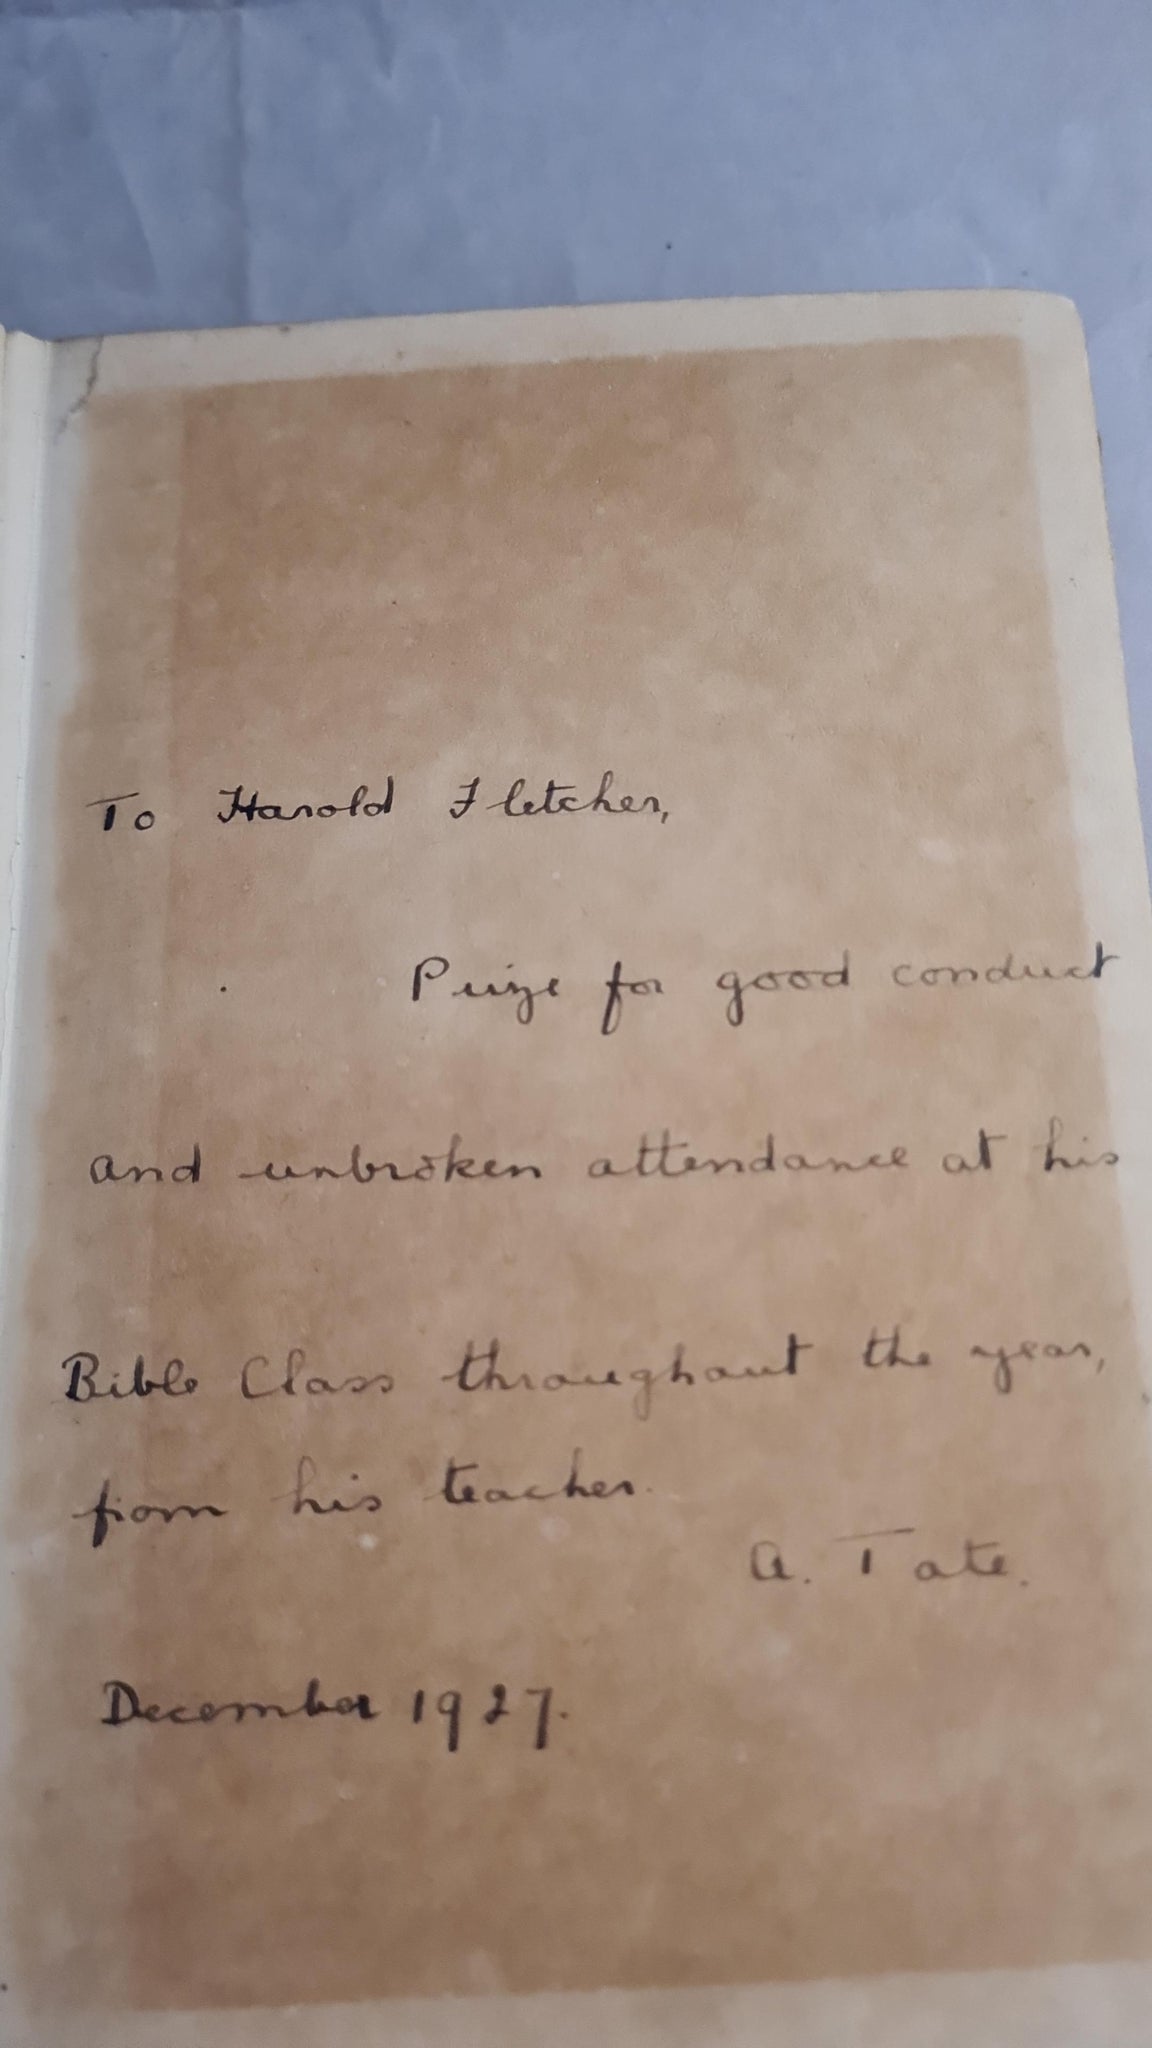 To Harold Fletcher,
Prize for good conduct
and unbroken attendance at his
Bible Class throughout the year,
from his teacher.
A. Tate.
December 1927.